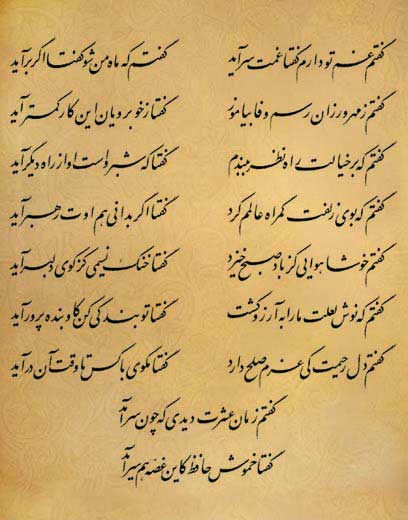 گفتم غم تو دارم گفتا غمت سرآید گفتم که ماه من شو گفتا اگر برآید
گفتم ز مهرورزان رسم وفا بیاموز گفتا ز خوبرویان این کار کمتر آید
گفتم که بر خیالت راه نظر ببندم گفتا که شبرو است او از راه دیگر آید
گفتم که بوی زلفت گمراه عالمم کرد گفتا اگر بدانی هم اوت رهبر آید
گفتم خوشا هوایی کز باد صبح خیزد گفتا خنک نسیمی کز کوی دلبر آید
گفتم که نوش لعلت ما را به آرزو کشت گفتا تو بندگی کن کاو بنده پرور آید
گفتم دل رحیمت کی عزم صلح دارد گفتا مگوی با کس تا وقت آن درآید
گفتم زمان عشرت دیدی که چون سرآمد
گفتا خموش حافظ کاین غصه هم سرآید